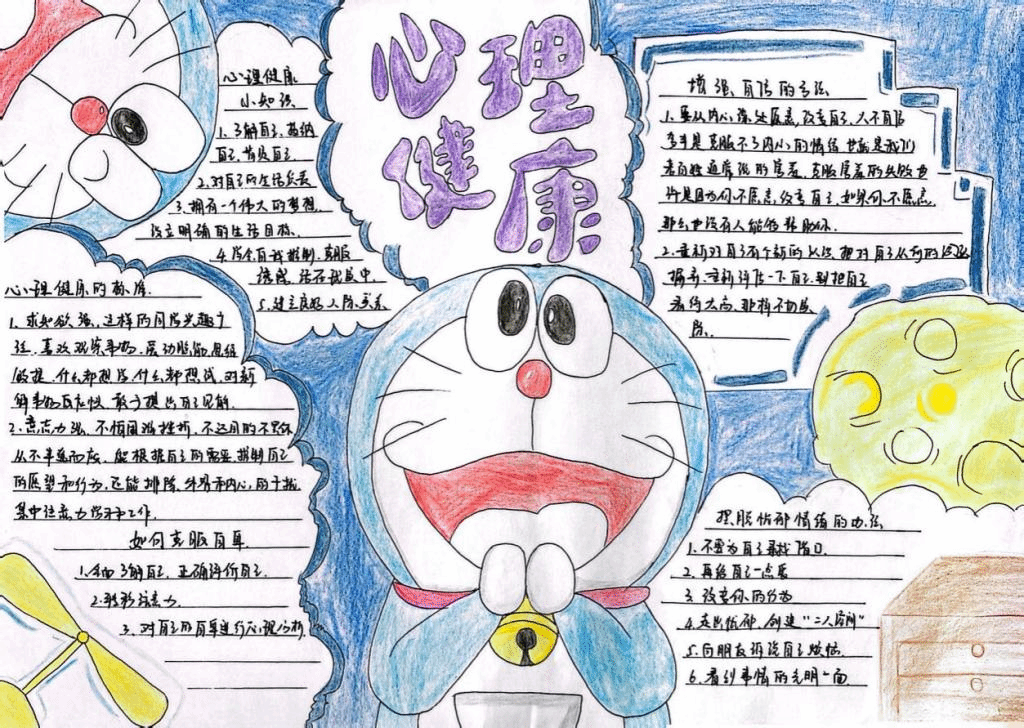 心理
健康
心理健康
小知识
1.了解自己,接纳
自己,
2.对自己的生活负责
3.拥有一个伟大的梦想
设立明确的生活目标.
4.学会自我控制,克服
诱惑,活在
5.建立良好人际关系
心理健康的标准.
1.求知欲强,这样的同学兴趣广
泛,喜欢观察事物,爱动脑筋,思维
敏捷,什么都想学,什么都想试,对新
鲜事物反应快,敢于提出自己见解.
2.意志力强,不怕困难挫折,不达目的不罢休
从不半途而废,能根据自己的需要控制自己
的愿望和行为,还能排除外界和内心的干扰
集中注意力学习和工作.
如何克服自卑
1.全面了解自己,正确评价自己.
2.转移注意力.
3.对自己的自卑进行心理分析
增强自信的方法
1.要从内心深处愿意改变自己,人不自信
多半是克服不了内心的情结,也就是我们
来自
许是因为你不愿意改变自己,如果你不愿意,
那么也没有人能够帮助你.
2.重新对自己有个新的认识,把对自己从前的
抛弃,重新评估一下自己,别把自己
看得太高,那样不切实
际.
摆脱忧郁情绪的办法
1.不要为自己寻找借口
2.再给自己一点爱
3.改变你的行为
4.走出忧郁,创建"二人空间"
5.向朋友诉说自己烦恼
6.看到事情的光明一面